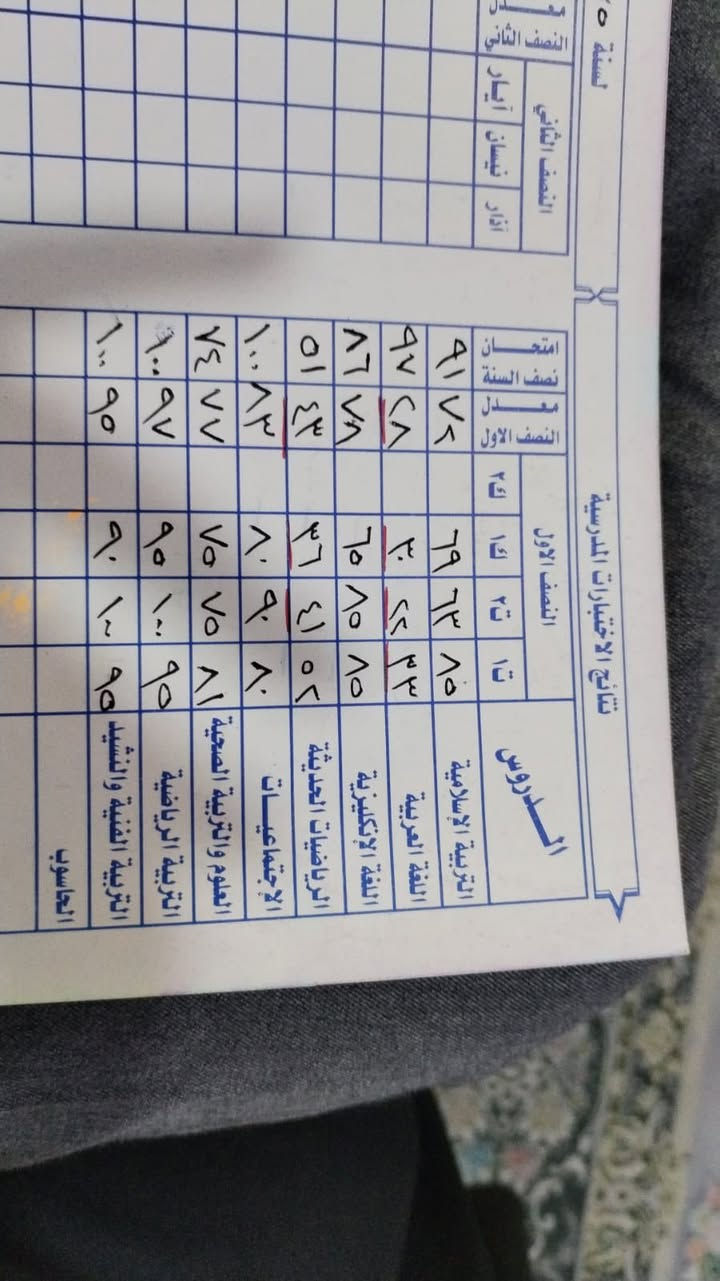 نتائج الاختبارات المدرسية
لسنة
الـــدروس
النصف الاول
ت١ ت٢ ك١ ك٢
معـــدل النصف الاول
امتحـــان نصف السنة
النصف الثاني
آذار نيسان آيـار
معـــدل النصف الثاني
التربية الإسلامية ٨٥ ٦٣ ٦٩ ٧٢ ٩١
اللغة العربية ٣٣ ٢٢ ٣٠ ٢٨ ٩٧
اللغة الإنكليزية ٨٥ ٨٥ ٦٥ ٧٨ ٨٦
الرياضيات الحديثة ٥٢ ٤١ ٣٦ ٤٣ ٥١
الإجتماعيـــات ٨٠ ٩٠ ٨٠ ٨٣ ١٠٠
العلوم والتربية الصحية ٨١ ٧٥ ٧٥ ٧٧ ٧٤
التربية الرياضية ٩٥ ١٠٠ ٩٥ ٩٧ ١٠٠
التربية الفنية والنشيد ٩٥ ١٠٠ ٩٠ ٩٥ ١٠٠
الحاسوب